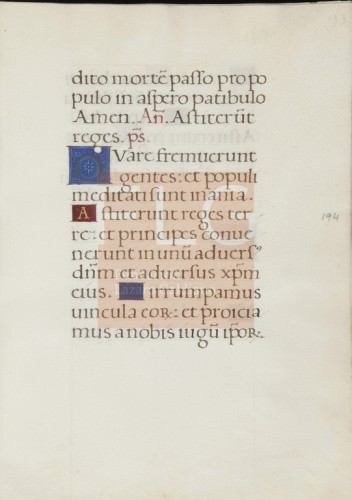 dito mortē passo pro po
pulo in aspero patibulo
Amen. Añ. Astiterūt
reges. p̄s.
Q Vare fremuerunt
gentes: et populi
meditati sunt inania.
Astiterunt reges ter
re: et principes conue
nerunt in unū aduersꝰ
dn̄m et aduersus xp̄m
eius. Dirrumpamus
uincula eoꝝ: et proicia
mus a nobis iugū ip̄oꝝ.
194